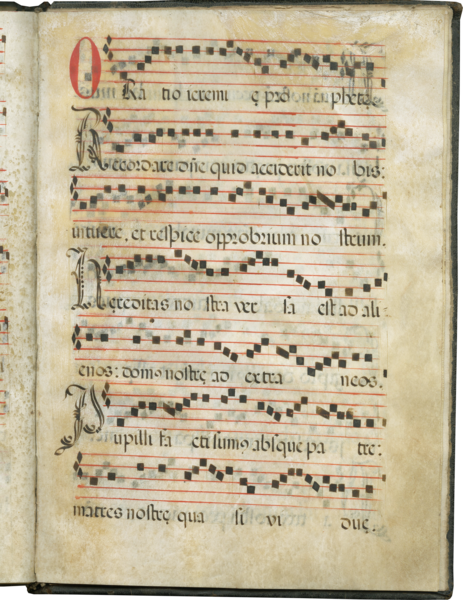 ORa tio ieremi ę prę phetę
Recordare dñe quid acciderit no bis:
intuere, et respice opprobrium no strum.
Hereditas no stra ver sa est ad ali
enos: domꝰ nostrę ad extra neos.
Pupilli fa cti sumꝰ absque pa tre:
matres nostrę qua si vi duę.